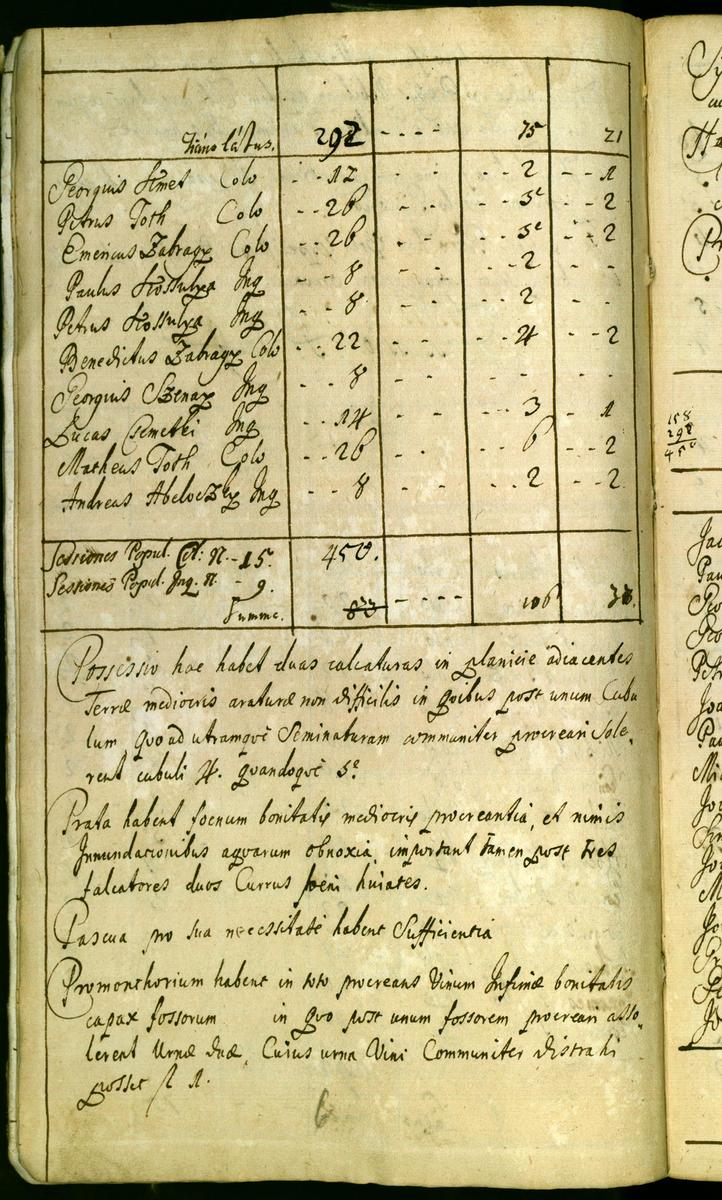 látus. 292 - - - - 75 21
Georgius Colo - - 12 - - - - 2 - - 1
Petrus Toth Colo - - 26 - - - - 5 - - 2
Emericus Zabragy Colo - - 26 - - - - 5 - - 2
Paulus Kossulya Inq - - 8 - - - - 2 - -
Petrus Kossulya Inq - - 8 - - - - 2 - -
Benedictus Zabragy Colo - - 22 - - - - 4 - - 2
Georgius Szenay Inq - - 8 - - - - - -
Lucas Csemetki Inq - - 14 - - - - 3 - 1
Matheus Toth Colo - - 26 - - - - 6 - - 2
Andreas Abeloczky Inq - - 8 - - - - 2 - - 2
Sessiones Popul. Col: N. - 15. 450.
Sessiones Popul. Inq. N. - 9.
Summa. 83 - - - - 106 33.
Possessio hae habet duas calcaturas in planicie adiacentes
Terræ mediocris araturæ non difficilis in quibus post unum Cubu
lum quoad utramque Seminaturam communiter procreari sole,
rent cubuli 4. quandoque 5
Prata habent foenum bonitatis mediocris procreantia, et nimis
Innundationibus aquarum obnoxia, important tamen post tres
falcatores duos Currus foeni huiates.
Pascua pro sua necessitate habent Sufficientia
Promonthorium habent in toto procreans Vinum Infimæ bonitatis
capax fossorum in quo post unum fossorem procreari asso,
lerent Urnæ duæ, Cuius urna Vini Communiter distrahi
posset f 1.
6
158
292
450